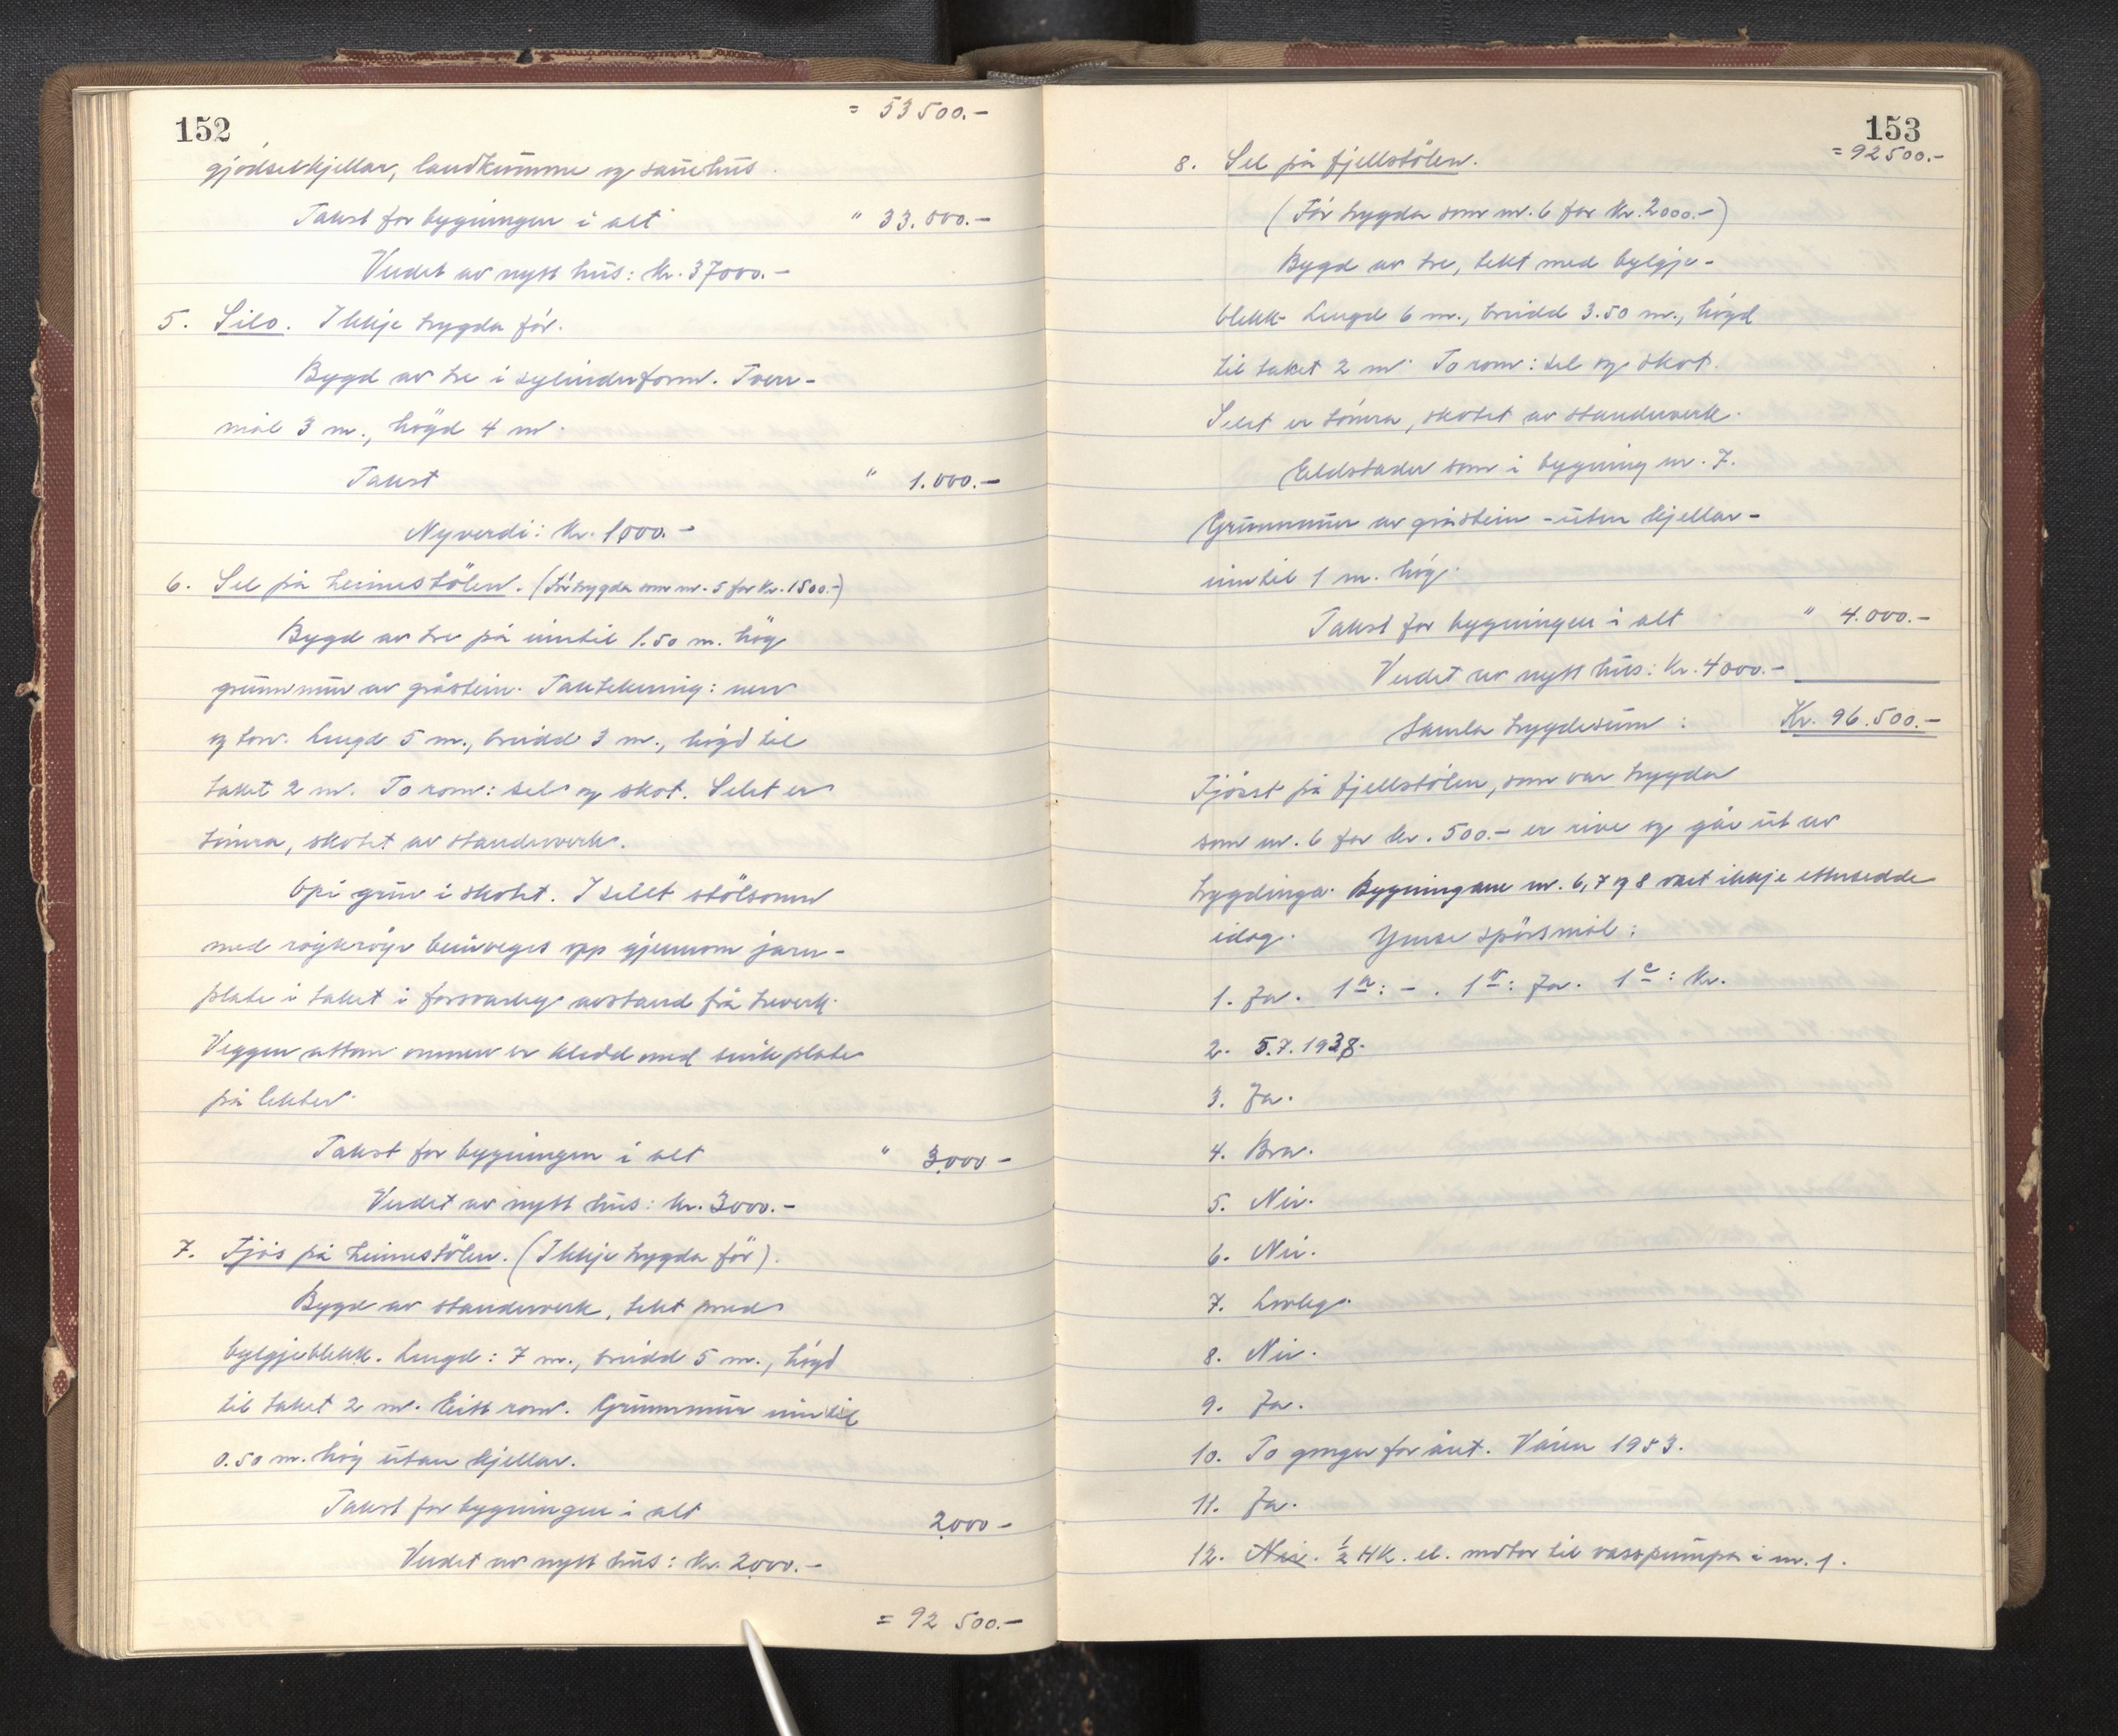 152
= 53 500.-
gjødselkjellar, landkumme og sauehus.
Takst for bygningen i alt " 33.000.-
Verdet av nytt hus: kr. 37000.-
5. Silo. Ikkje trygda før.
Bygd av tre i sylinderform. Tverr-
mål 3 m., høgd 4 m.
Takst " 1.000.-
Nyverdi: kr. 1000.-
6. Sel på heimestølen. (Før trygda som nr. 5 for kr. 1500.-)
Bygd av tre på inntil 1.50 m. høg
grunnmur av gråstein. Taktekning: nevr
og torv. Lengd 5 m., breidd 3 m., høgd til
taket 2 m. To rom: sel og skot. Selet er
tømra, skotet av standerverk.
Opi gruve i skotet. I selet stølsomn
med røykrøyr beinveges opp gjennom jarn-
plate i taket i forsvarleg avstand frå treverk.
Veggen attom omnen er kledd med sinkplate
på lekter.
Takst for bygningen i alt " 3.000 -
Verdet av nytt hus: kr. 3000.-
7. Fjøs på heimestølen. (Ikkje trygda før).
Bygd av standerverk, tekt med
bylgjeblekk. Lengd: 7 m., breidd 5 m., høgd
til taket 2 m. Eitt rom. Grunnmur inntil
0.50 m. høg utan kjellar.
Takst for bygningen i alt 2.000 -
Verdet av nytt hus: kr. 2000.-
= 92 500.-
153
= 92 500.-
8. Sel på fjellstølen.
(Før trygda som nr. 6 for kr. 2000.-)
Bygd av tre, tekt med bylgje-
blekk. Lengd 6 m., breidd 3.50 m., høgd
til taket 2 m. To rom: sel og skot.
Selet er tømra, skotet av standerverk.
Eldstader som i bygning nr. 7.
Grunnmur av gråstein - utan kjellar -
inntil 1 m. høg.
Takst for bygningen i alt " 4.000.-
Verdet av nytt hus: kr. 4000.-
Samla trygdesum: Kr. 96.500.-
Fjøset på fjellstølen, som var trygda
som nr. 6 for kr. 500.- er rive og går ut av
trygdinga. Bygningane nr. 6, 7 og 8 vart ikkje ettersedde
idag. Ymse spørsmål:
1. Ja. 1a: - . 1b: Ja. 1c: kr.
2. 5.7.1938.
3. Ja.
4. Bra.
5. Nei.
6. Nei.
7. Lovleg.
8. Nei.
9. Ja.
10. To gonger for året. Våren 1953.
11. Ja.
12. Nei. 1/2 HK. el. motor til vasspumpa i nr. 1.